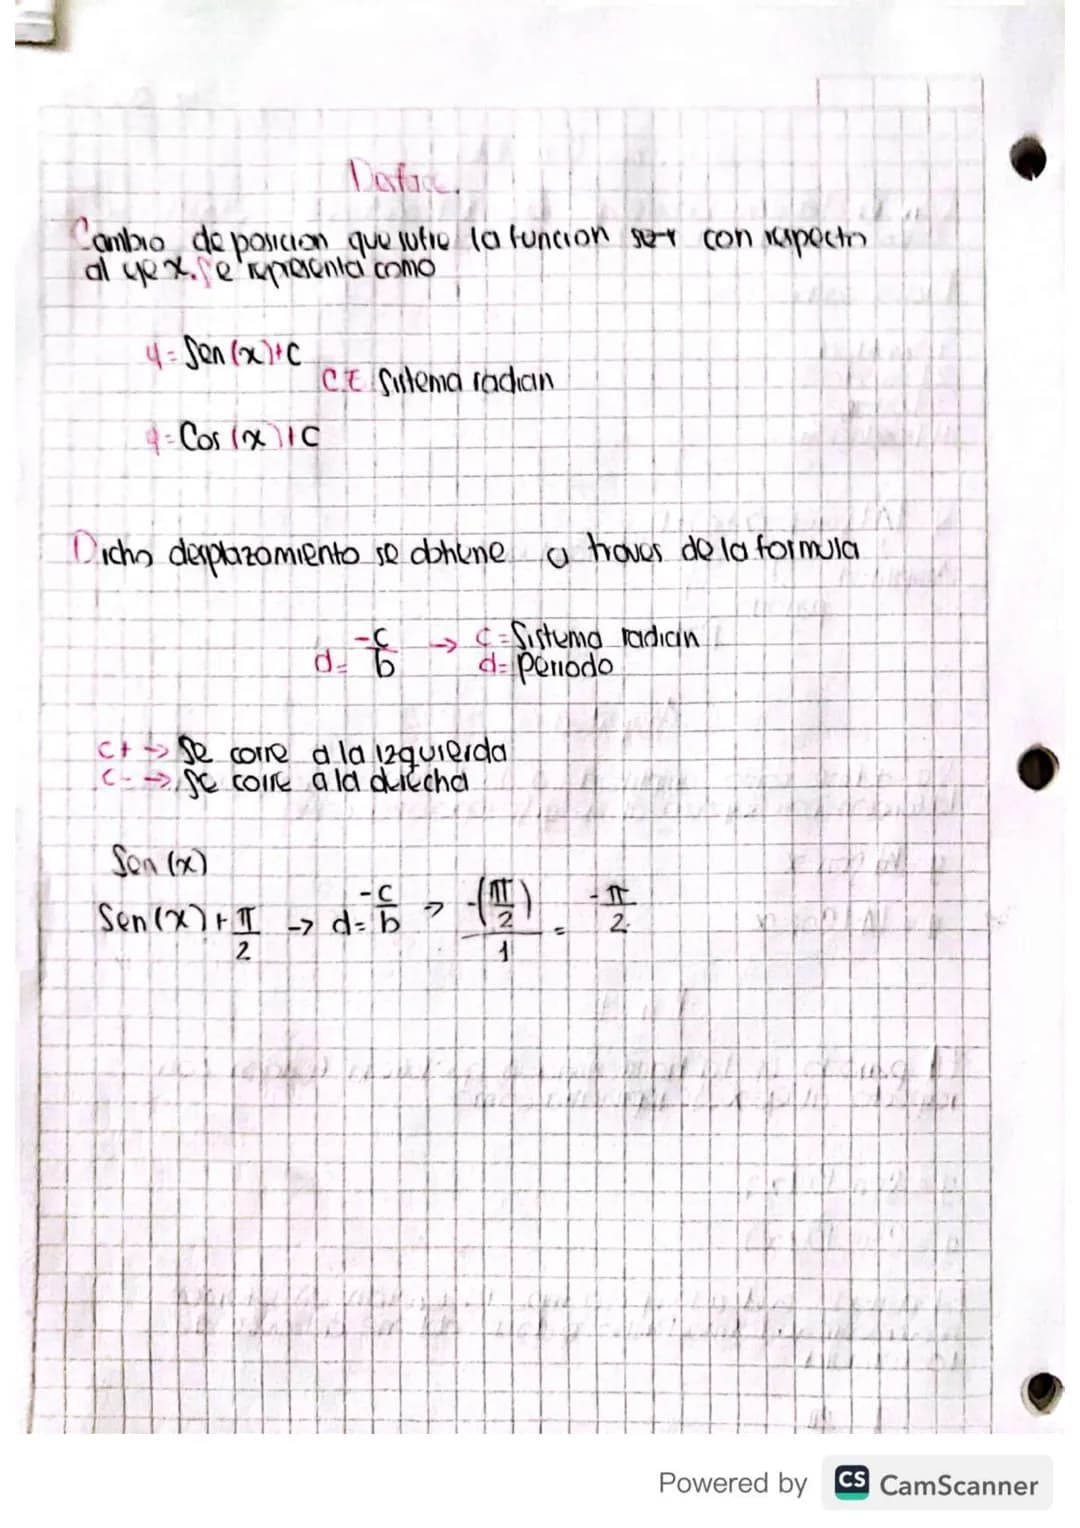 Desface.
Cambio de posicion que sufre la funcion con respecto
al eje x. Se representa como
y = Sen (x)+C
C.E Sistema radian
y = Cos (x)+C
Dicho desplazamiento se obtiene a traves de la formula
d = -c/b → C = Sistema radian
d = Periodo
C+ → Se corre a la izquierda
C- → Se corre a la derecha
Sen (x)
Sen (x) + π/2 → d = -c/b → -(π/2)/1 = -π/2
Powered by CS CamScanner